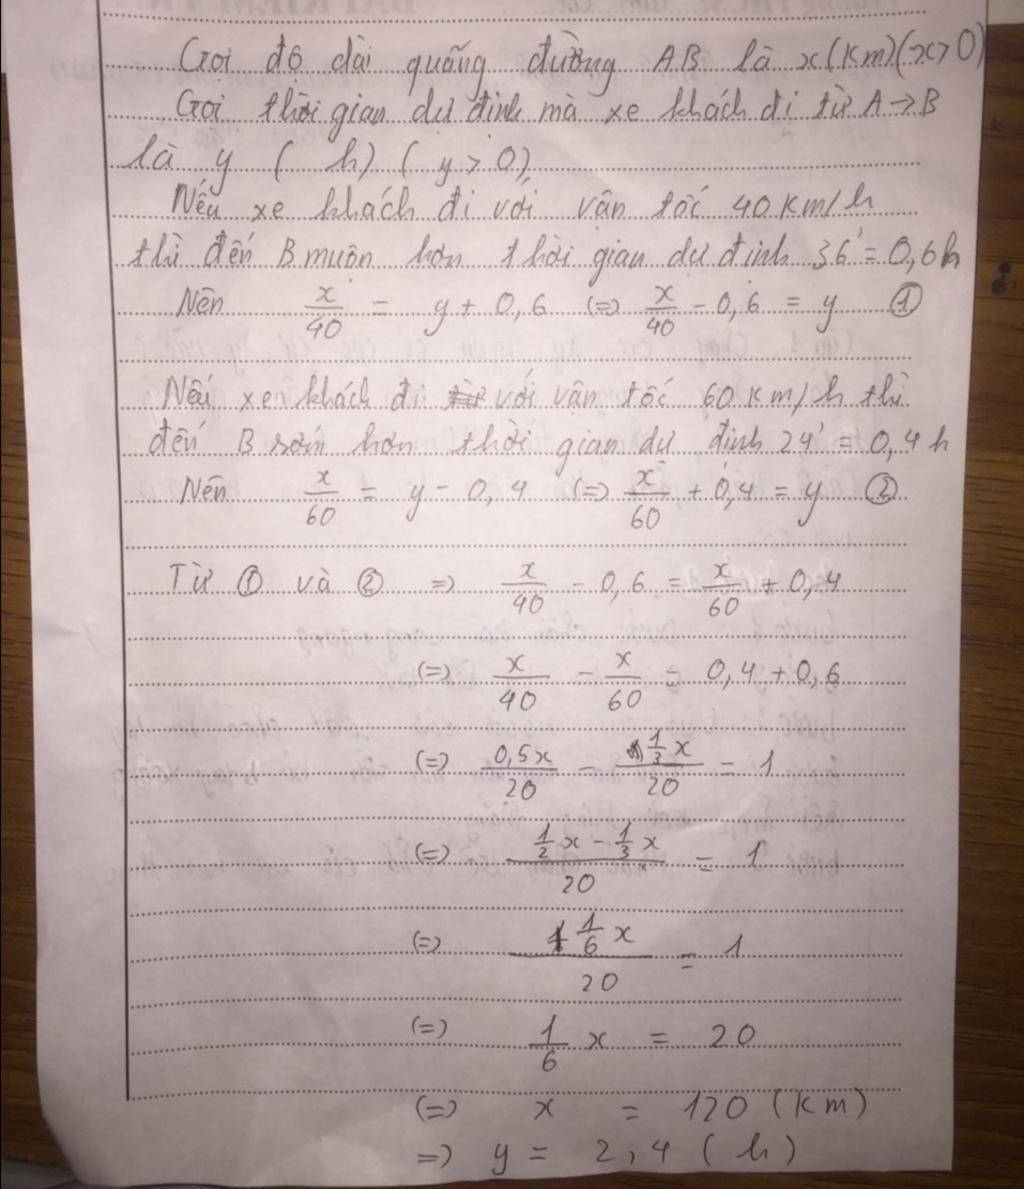 Gọi độ dài quãng đường AB là x(km)(x>0)
Gọi thời gian dự định mà xe khách đi từ A→B
là y (h) (y>0)
Nếu xe khách đi với vận tốc 40 km/h
thì đến B muộn hơn thời gian dự định 36' = 0,6h
Nên x/40 = y + 0,6 (=) x/40 - 0,6 = y ①
Nếu xe khách đi với vận tốc 60 km/h thì
đến B sớm hơn thời gian dự định 24' = 0,4h
Nên x/60 = y - 0,4 (=) x/60 + 0,4 = y ②
Từ ① và ② => x/40 - 0,6 = x/60 + 0,4
(=) x/40 - x/60 = 0,4 + 0,6
(=) 0,5x/20 - 1/3 x/20 = 1
(=) (1/2 x - 1/3 x)/20 = 1
(=) 1/6 x/20 = 1
(=) 1/6 x = 20
(=) x = 120 (km)
=> y = 2,4 (h)